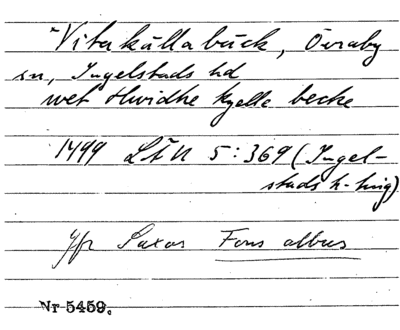 *Vitakällabäck, Övraby
sn, Ingelstads hd
wet Hwidhe kyelle becke
1499 LÄU 5:369 (Ingel-
stads h-ting)
Jfr Saxos Fons albus
Nr 5459.